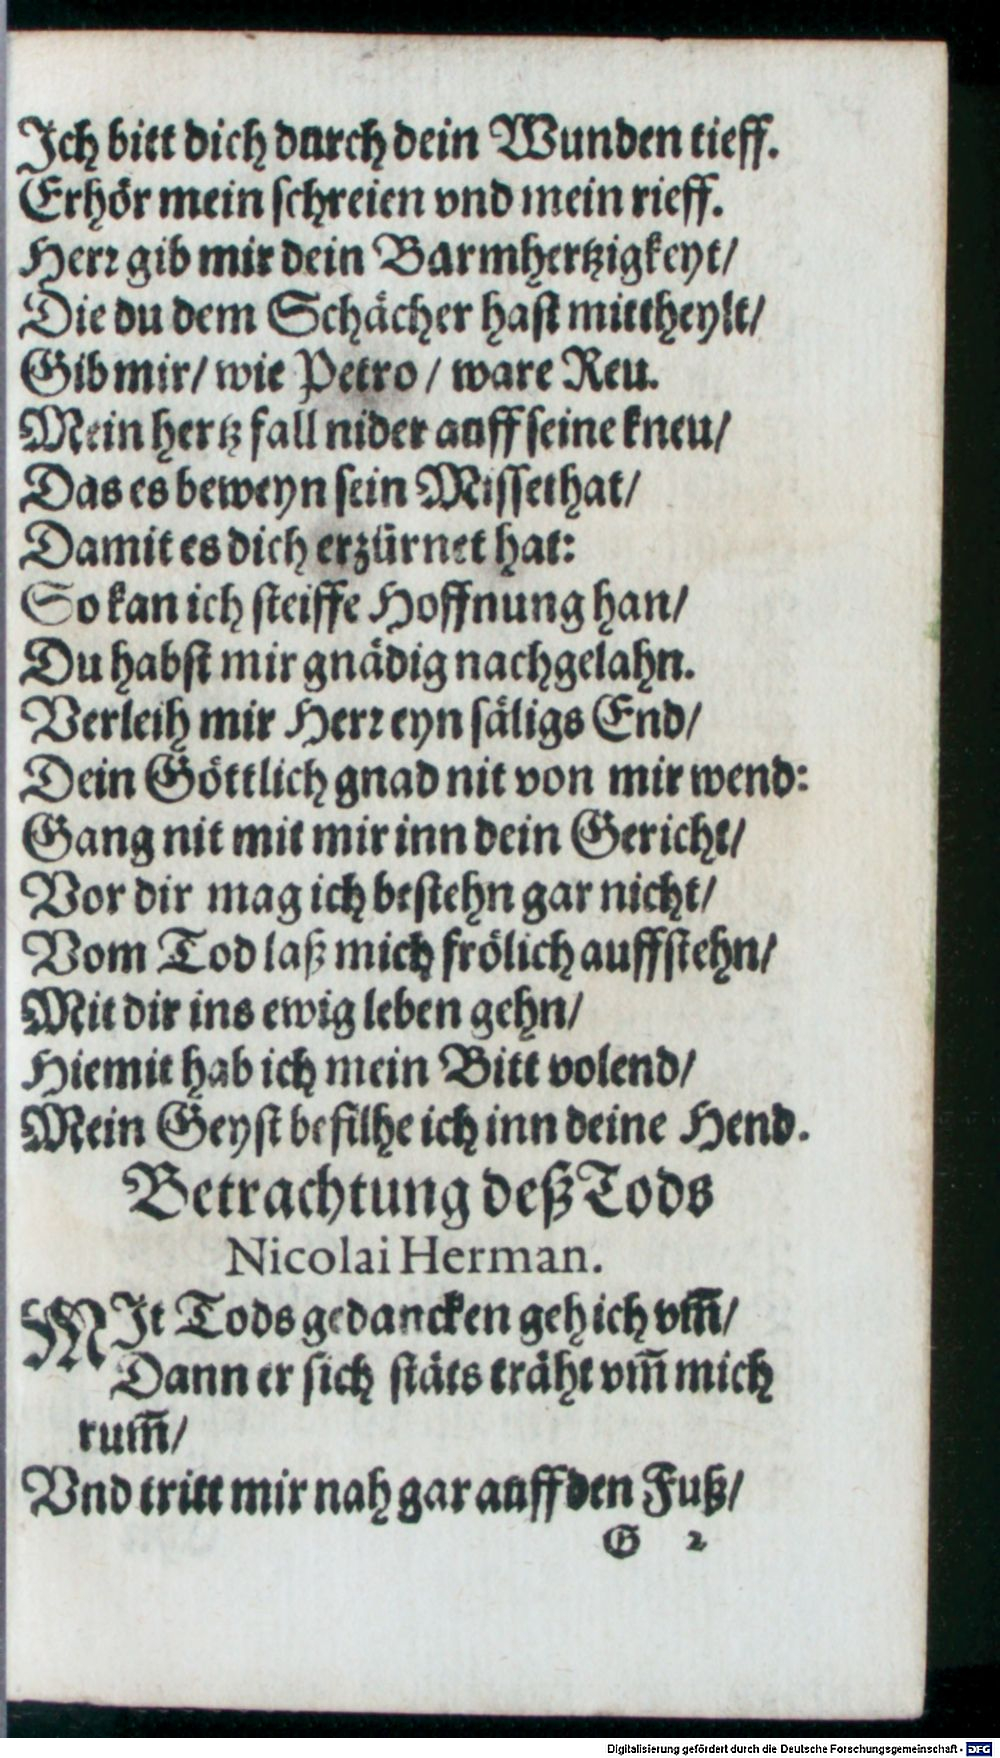 Ich bitt dich durch dein Wunden tieff.
Erhör mein schreien vnd mein rieff.
Herr gib mir dein Barmhertzigkeyt/
Die du dem Schächer hast mittheylt/
Gib mir/ wie Petro/ ware Reu.
Mein hertz fall nider auff seine kneu/
Das es beweyn sein Missethat/
Damit es dich erzürnet hat:
So kan ich steiffe Hoffnung han/
Du habst mir gnädig nachgelahn.
Verleih mir Herr eyn säligs End/
Dein Göttlich gnad nit von mir wend:
Gang nit mit mir inn dein Gericht/
Vor dir mag ich bestehn gar nicht/
Vom Tod laß mich frölich auffstehn/
Mit dir ins ewig leben gehn/
Hiemit hab ich mein Bitt volend/
Mein Geyst befilhe ich inn deine Hend.
Betrachtung deß Tods
Nicolai Herman.
MIt Tods gedancken geh ich vm̃/
Dann er sich stäts träht vm̃ mich
rum̃/
Vnd tritt mir nah gar auff den Fuß/
G 2
Digitalisierung gefördert durch die Deutsche Forschungsgemeinschaft - DFG